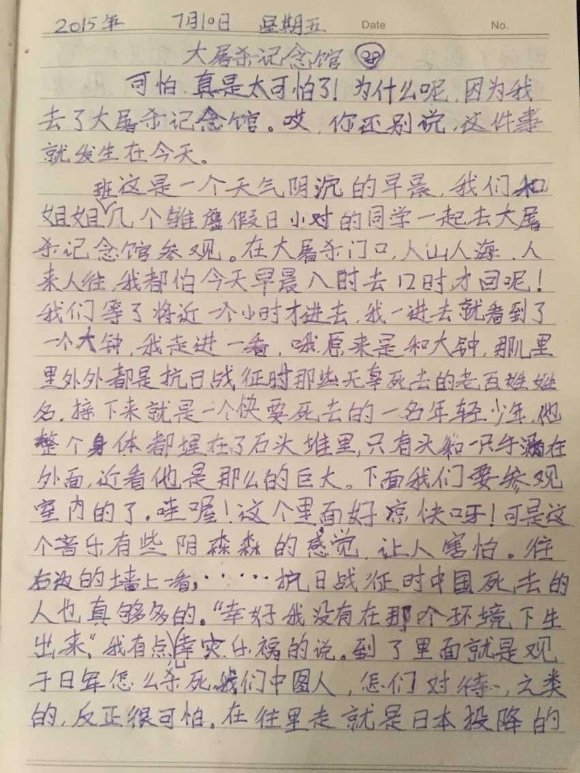 2015年 7月10日 星期五 Date No.
大屠杀记念馆
可怕,真是太可怕了!为什么呢,因为我
去了大屠杀记念馆。哎,你还别说,这件事
就发生在今天。
这是一个天气阴沉的早晨,我们和
姐姐班几个雏鹰假日小对的同学一起去大屠
杀记念馆参观。在大屠杀门口,人山人海,人
来人往,我都怕今天早晨八时去12时才回呢!
我们等了将近一个小时才进去,我一进去就看到了
一个大钟,我走进一看,哦原来是和大钟,那儿里
里外外都是抗日战征时那些无辜死去的老百姓姓
名。接下来就是一个快要死去的一名年轻少年,他
整个身体都埋在了石头堆里,只有头和一只手在
外面,近看他是那么的巨大。下面我们要参观
室内的了。哇喔!这个里面好凉快呀!可是这
个音乐有些阴森森的感觉,让人害怕。往
右边的墙上一看,······抗日战征时中国死去的
人也真够多的。“幸好我没有在那个环境下生
出来,”我有点幸灾乐祸的说。到了里面就是观
于日军怎么杀死我们中国人,怎们对待,之类
的,反正很可怕。在往里走就是日本投降的